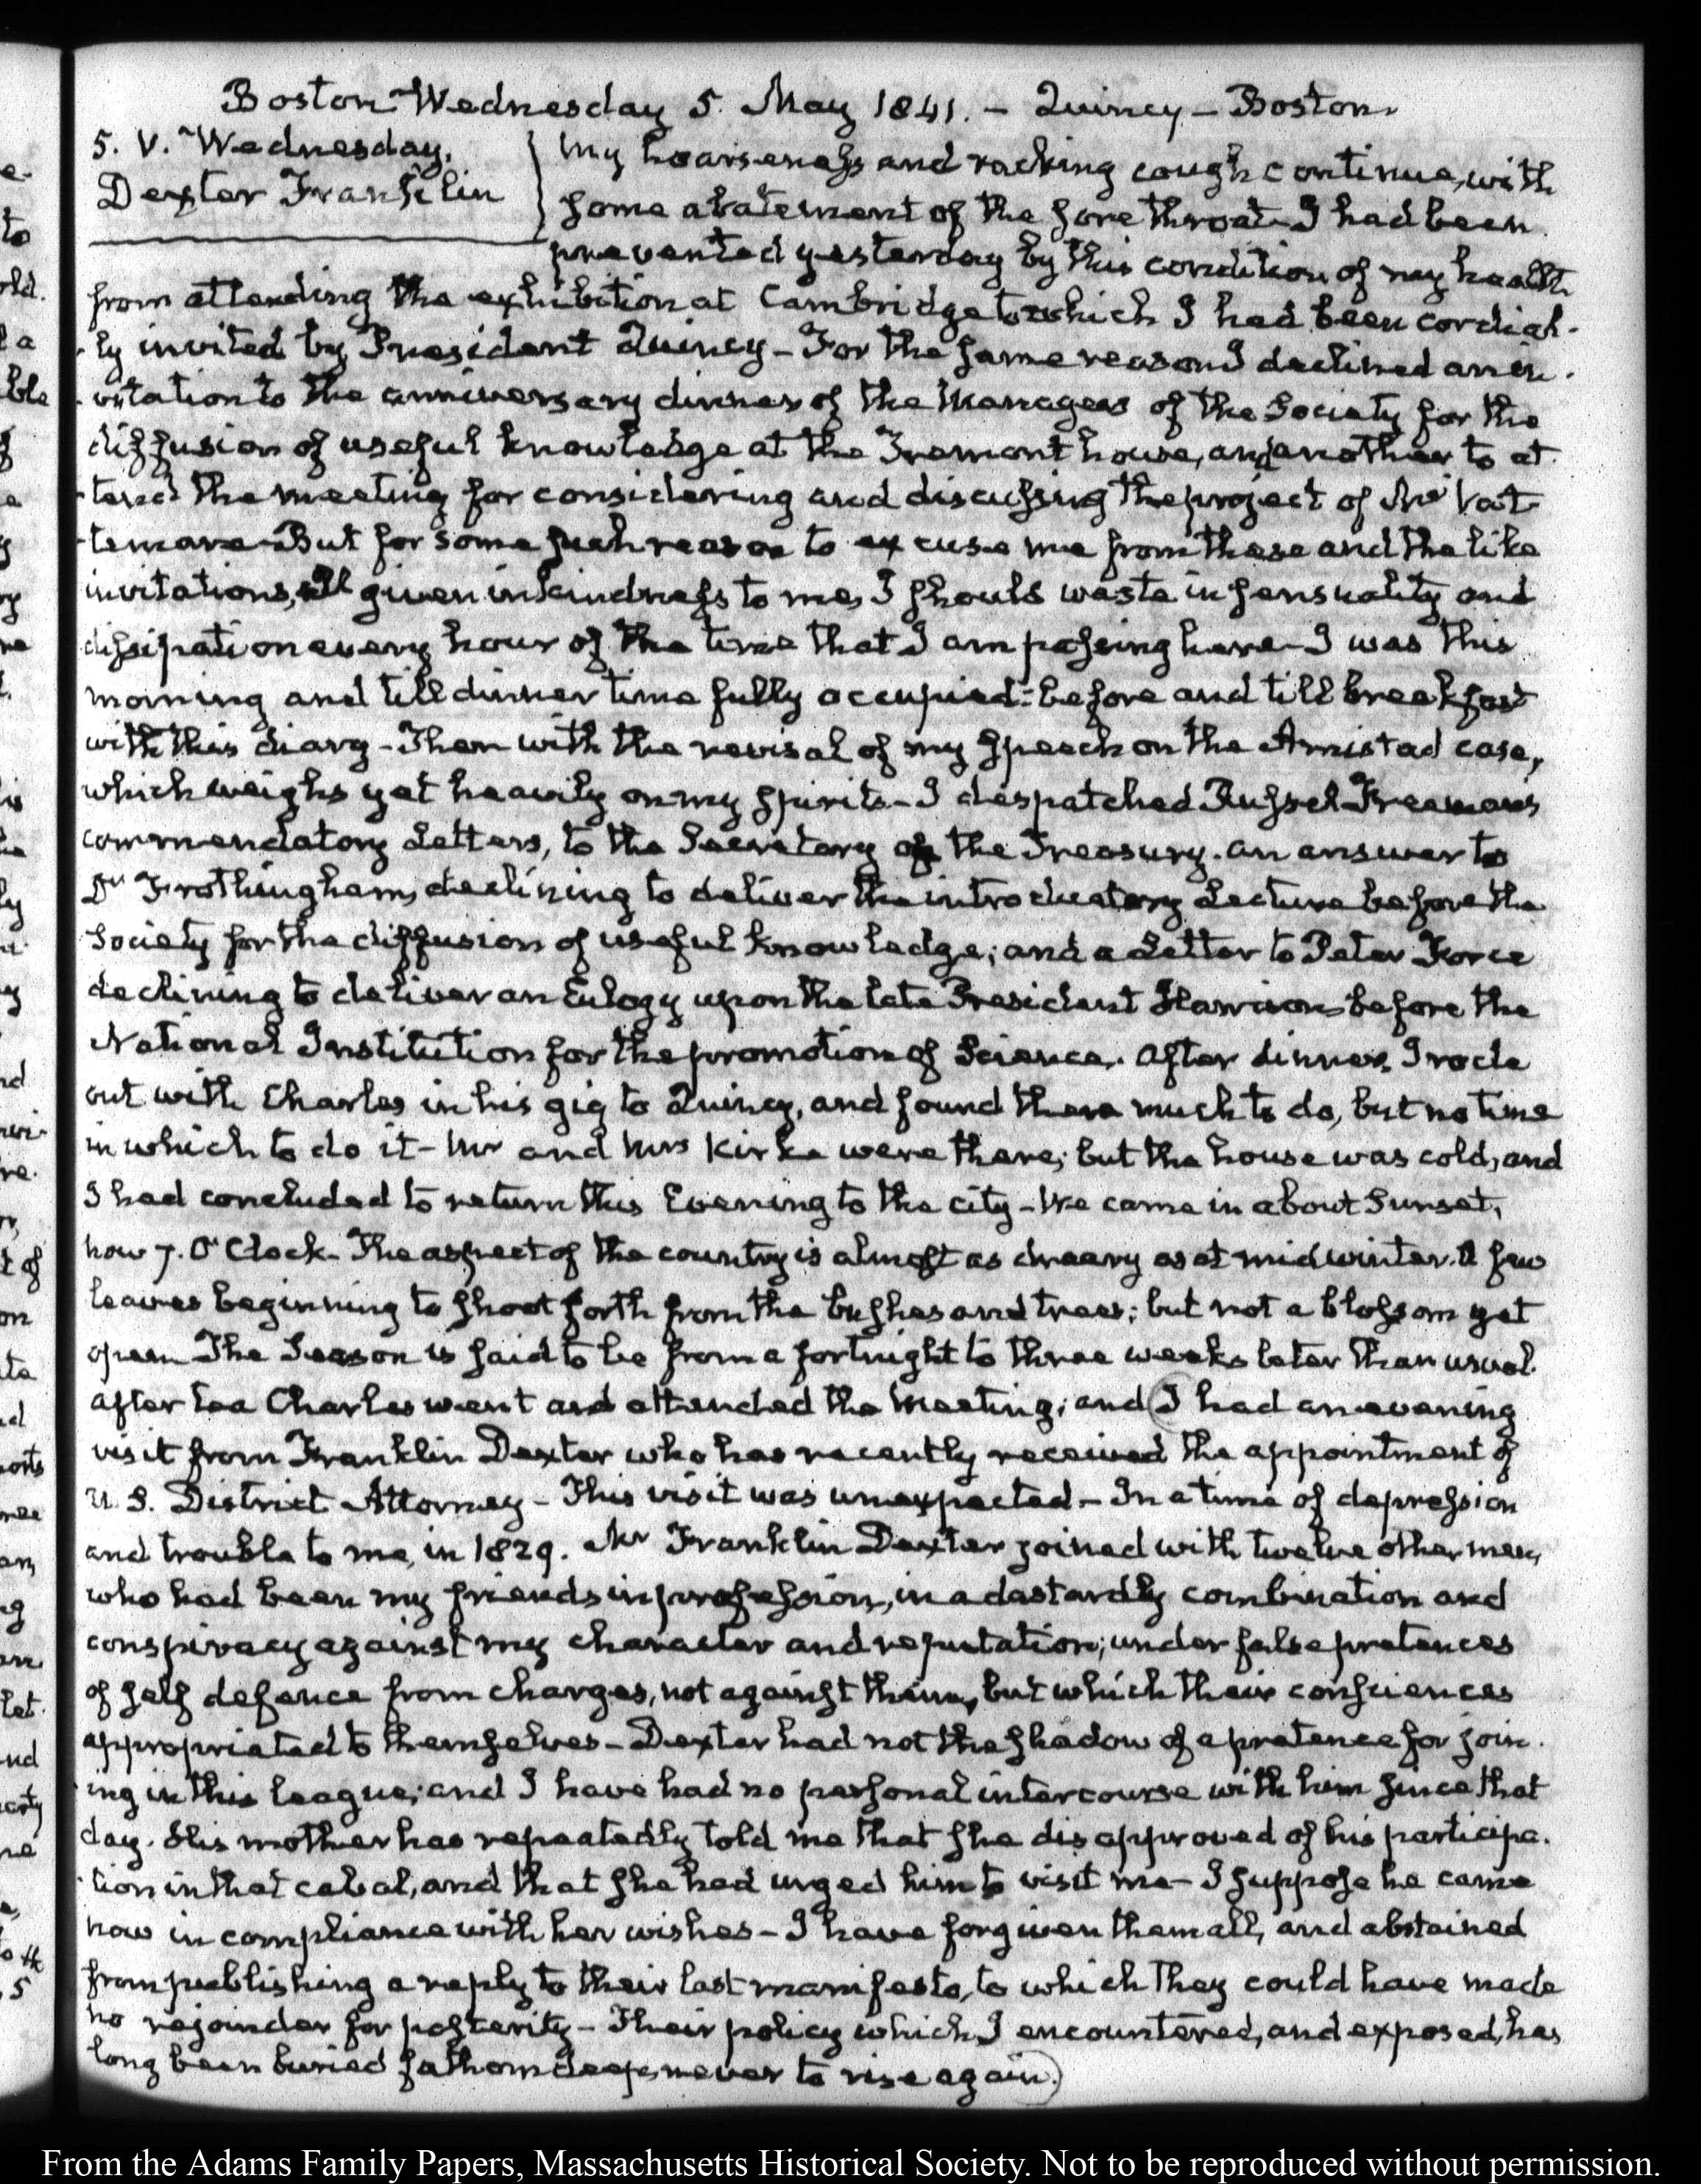 Boston Wednesday 5. May 1841. – Quincy – Boston
5. V. Wednesday.
Dexter Franklin
My hoarseness and racking cough continue, with
some abatement of the sore throat – I had been
prevented yesterday by this condition of my health
from attending the exhibition at Cambridge to which I had been cordial-
-ly invited by President Quincy – For the same reason I declined an in-
-vitation to the anniversary dinner of the Managers of the Society for the
diffusion of useful knowledge at the Tremont house, and another to at-
-tend the meeting for considering and discussing the project of Mr Vat-
-temare – But for some such reason to excuse me from these and the like
invitations, all given in kindness to me, I should waste in sensuality and
dissipation every hour of the time that I am passing here – I was this
morning and till dinner time fully occupied – before and till breakfast
with this diary – Then with the revisal of my speech on the Amistad case,
which weighs yet heavily on my spirits – I despatched Russel Freeman's
commendatory Letters, to the Secretary of the Treasury. an answer to
Dr Frothingham, declining to deliver the introductory Lecture before the
Society for the diffusion of useful knowledge; and a Letter to Peter Force
declining to deliver an Eulogy upon the late President Harrison before the
National Institution for the promotion of Science. After dinner, I rode
out with Charles in his gig to Quincy, and found there much to do, but no time
in which to do it – Mr and Mrs Kirke were there; but the house was cold, and
I had concluded to return this Evening to the city – We came in about Sunset,
now 7. O'Clock – The aspect of the country is almost as dreary as at midwinter. A few
leaves beginning to shoot forth from the bushes and trees; but not a blossom yet
open The Season is said to be from a fortnight to three weeks later than usual.
After tea Charles went and attended the Meeting; and (I had an evening
visit from Franklin Dexter who has recently received the appointment of
U. S. District Attorney – This visit was unexpected – In a time of depression
and trouble to me, in 1829. Mr Franklin Dexter joined with twelve other men,
who had been my friends in profession, in a dastardly combination and
conspiracy against my character and reputation; under false pretences
of self defence from charges, not against them, but which their consciences
appropriated to themselves – Dexter had not the shadow of a pretence for join-
-ing in this league; and I have had no personal intercourse with him since that
day. His mother has repeatedly told me that she disapproved of his participa-
-tion in that cabal, and that she had urged him to visit me – I suppose he came
now in compliance with her wishes – I have forgiven them all, and abstained
from publishing a reply to their last manifesto, to which they could have made
no rejoinder for posterity – Their policy which I encountered, and exposed, has
long been buried fathom deep, never to rise again.)
From the Adams Family Papers, Massachusetts Historical Society. Not to be reproduced without permission.